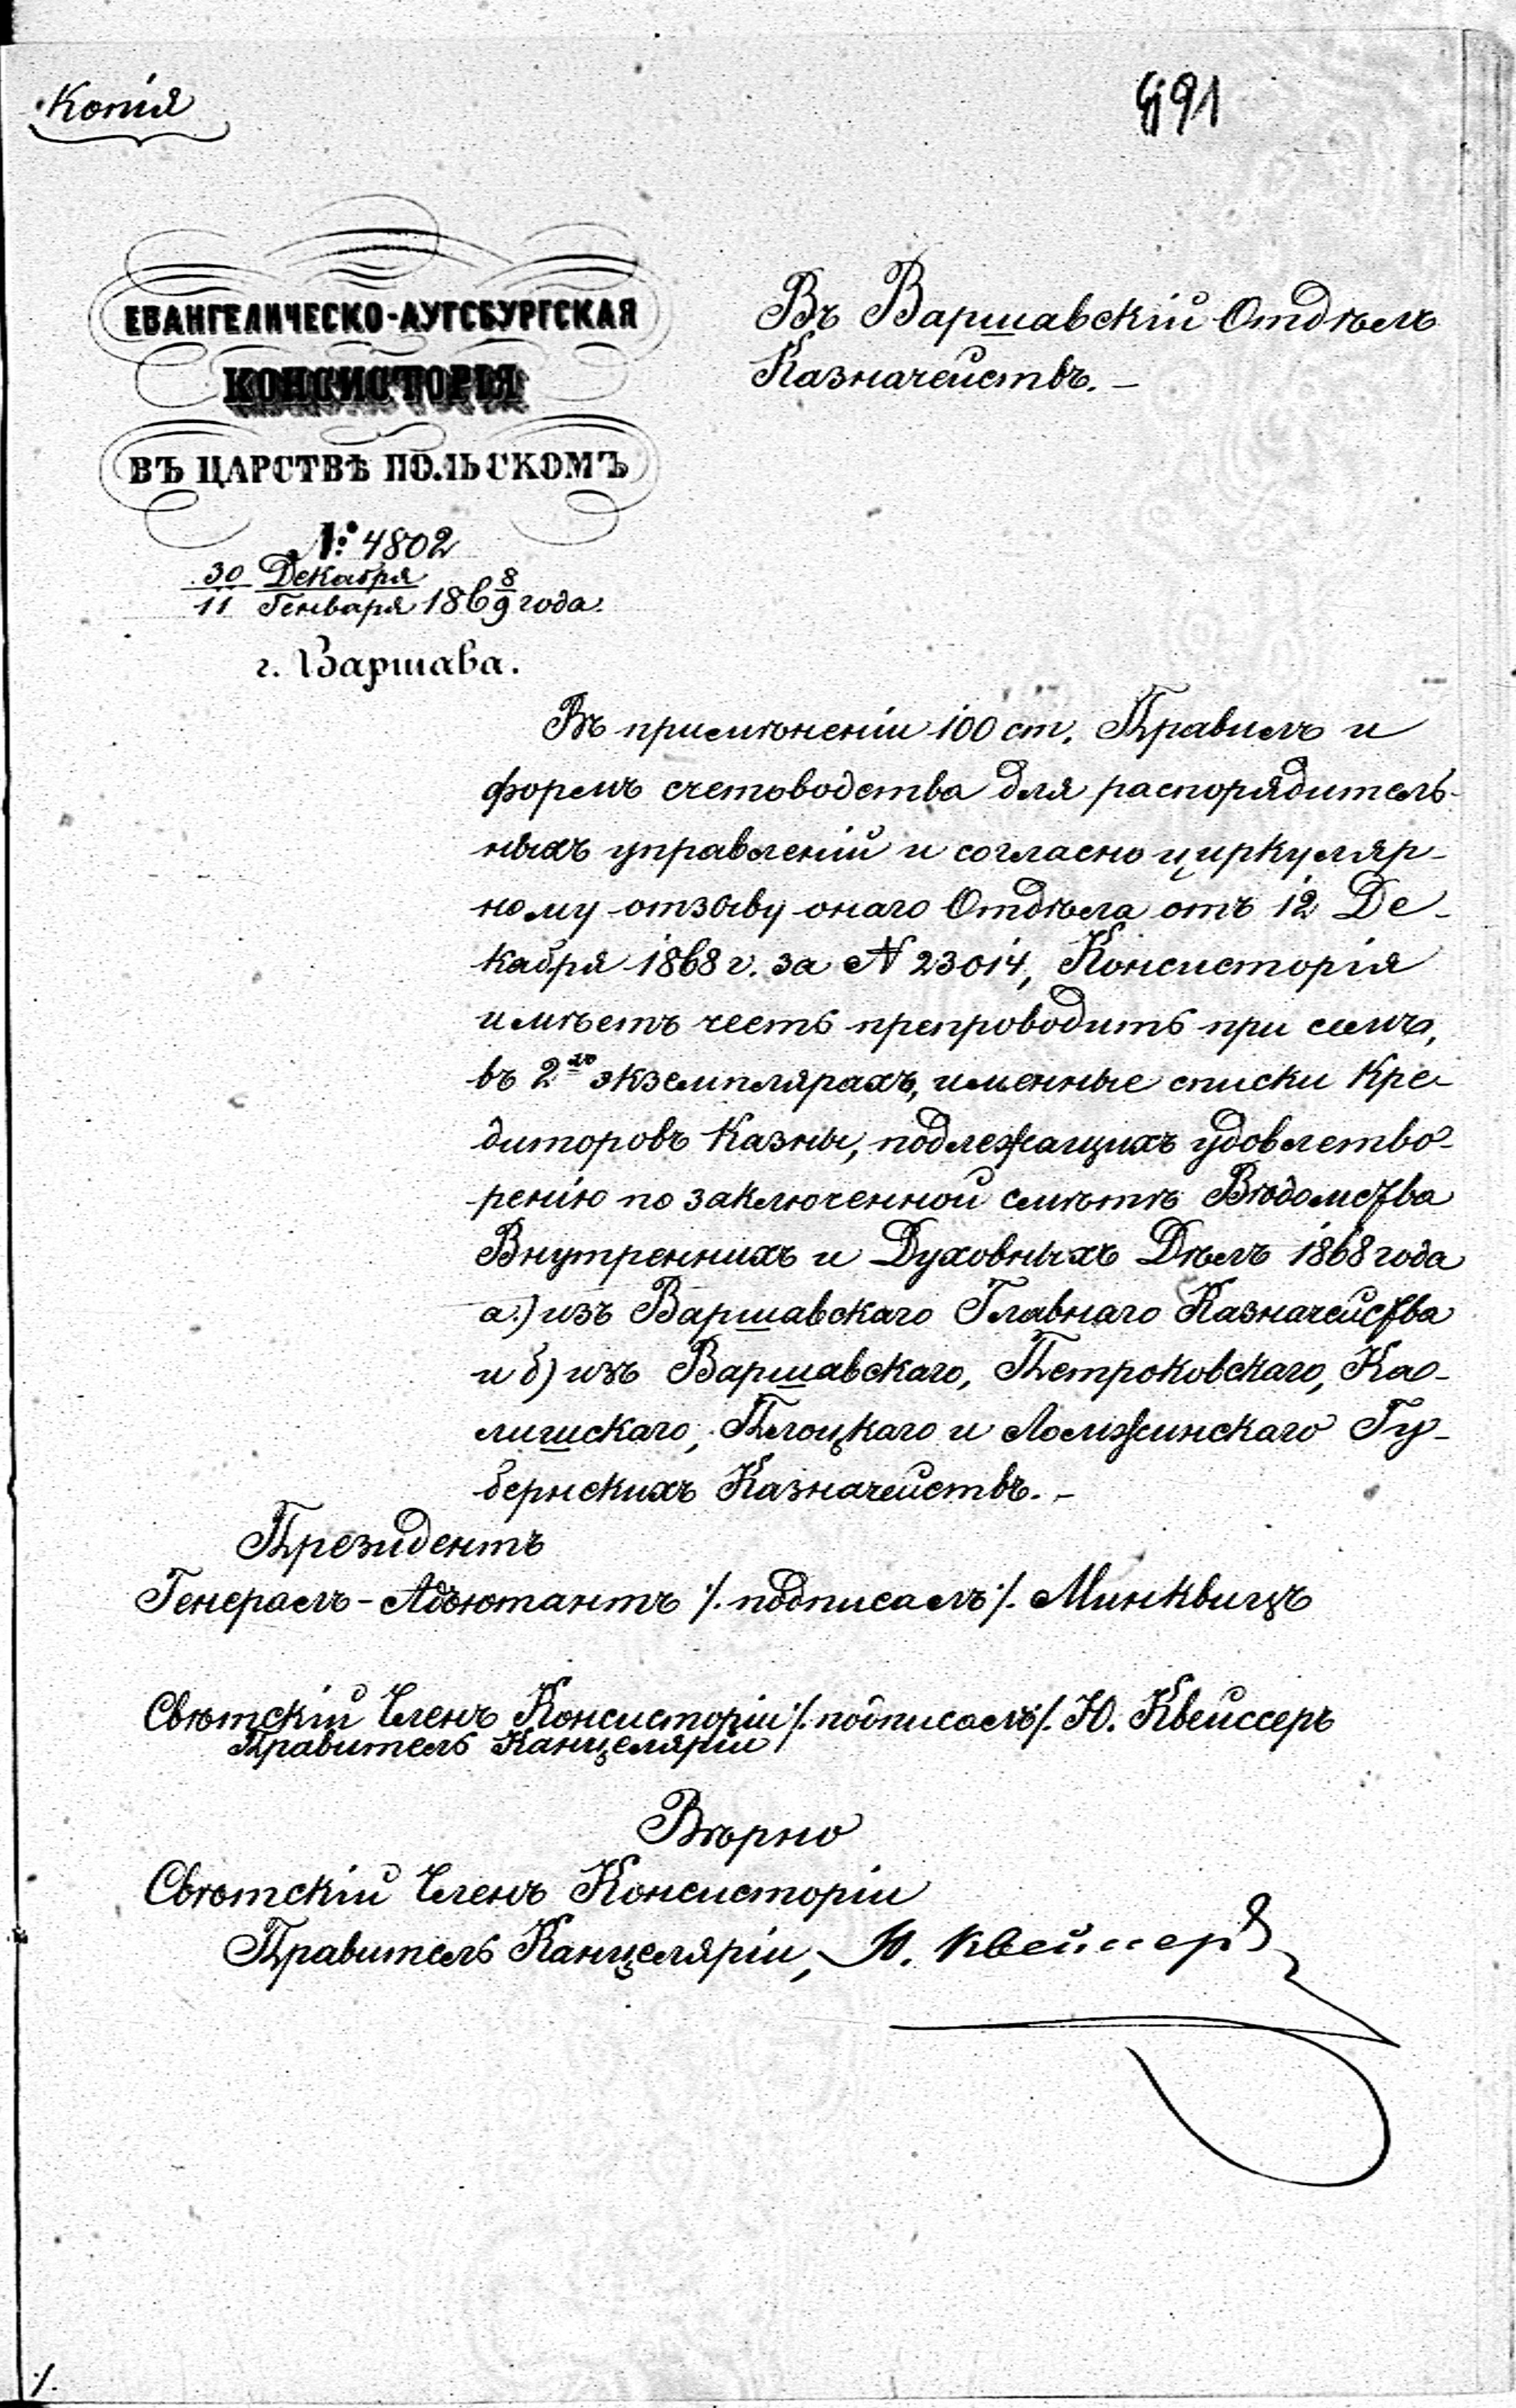 Копія
491
ЕВАНГЕЛИЧЕСКО-АУГСБУРГСКАЯ
КОНСИСТОРІЯ
ВЪ ЦАРСТВѢ ПОЛЬСКОМЪ
№ 4802
30 Декабря
11 Генваря 186 8/9 года.
г. Варшава.
Въ Варшавскій Отдѣлъ
Казначействъ. –
Въ примѣненіи 100 ст. Правилъ и
формъ счетоводства для распорядитель-
ныхъ управленій и согласно циркуляр-
ному отзыву онаго Отдѣла отъ 12 Де-
кабря 1868 г. за N 23014, Консисторія
имѣетъ честь препроводить при семъ,
въ 2хъ экземплярахъ, именные списки Кре-
диторовъ Казны, подлежащихъ удовлетво-
ренію по заключенной смѣтѣ Вѣдомства
Внутреннихъ и Духовныхъ Дѣлъ 1868 года
а.) изъ Варшавскаго Главнаго Казначейства
и б) изъ Варшавскаго, Петроковскаго, Ка-
лишскаго, Плоцкаго и Ломжинскаго Гу-
бернскихъ Казначействъ. –
Президентъ
Генералъ-Адъютантъ /. подписалъ /. Минквицъ
Свѣтскій Членъ Консисторіи /. подписалъ /. Ю. Квейссеръ
Правитель Канцеляріи
Вѣрно
Свѣтскій Членъ Консисторіи
Правитель Канцеляріи, Ю. Квейссеръ
·/.